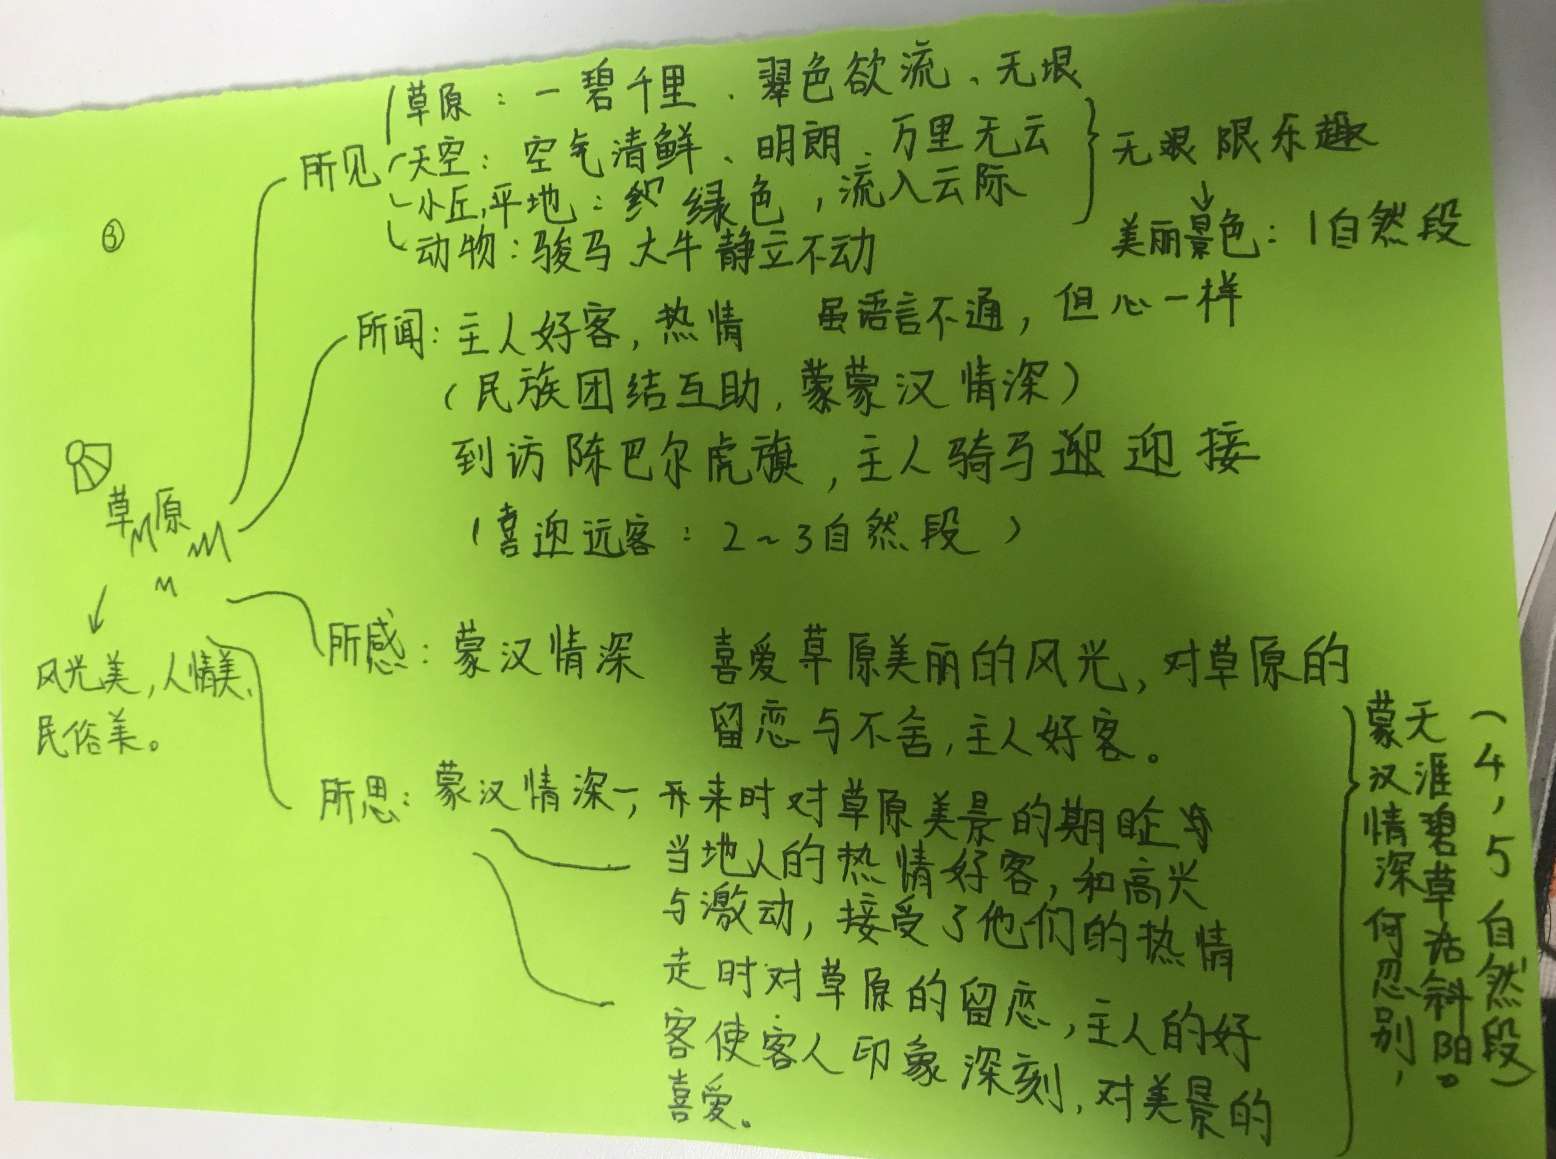 ③
草原：一碧千里、翠色欲流、无垠
所见
天空：空气清鲜、明朗、万里无云
小丘,平地：绿色，流入云际
动物：骏马 大牛 静立不动
无限乐趣
美丽景色：1自然段
所闻：主人好客，热情 虽语言不通，但心一样
（民族团结互助，蒙蒙汉情深）
到访陈巴尔虎旗，主人骑马迎迎接
（喜迎远客：2~3自然段）
草原
风光美，人情美、
民俗美。
所感：蒙汉情深 喜爱草原美丽的风光，对草原的
留恋与不舍，主人好客。
所思：蒙汉情深
来时对草原美景的期
当地人的热情好客，和高兴
与激动，接受了他们的热情
走时对草原的留恋，主人的好
客使客人印象深刻，对美景的
喜爱。
蒙汉情深何忍别，
天涯碧草话斜阳。
（4，5自然段）